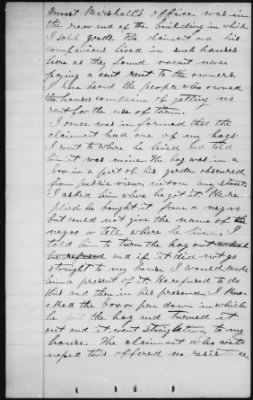 Provost Marshall's office was in
the rear end of the building in which
I sold goods. The claimant and his
companions lived in such houses
here as they found vacant never
paying a cent rent to the owners.
I have heard the people who owned
the houses complain of getting no
rent for the use of them.
I once was informed that the
claimant had one of my hogs.
I went to where he lived and told
him it was mine. The hog was in a
box in a part of his garden obscured
from public view from any street.
I asked him where he got it. He re
plied he bought it from a negro
but could not give the name of the
negro or tell where he lived. I
told him to turn the hog out
he refused and if it did not go
straight to my house I would make
him a present of it. He refused to do
this and then in his presence I knoc
cked the box or pen down in which
he put the hog and turned it
out and it went straightway to my
house. The claimant who wit
nessed this offered no resistance